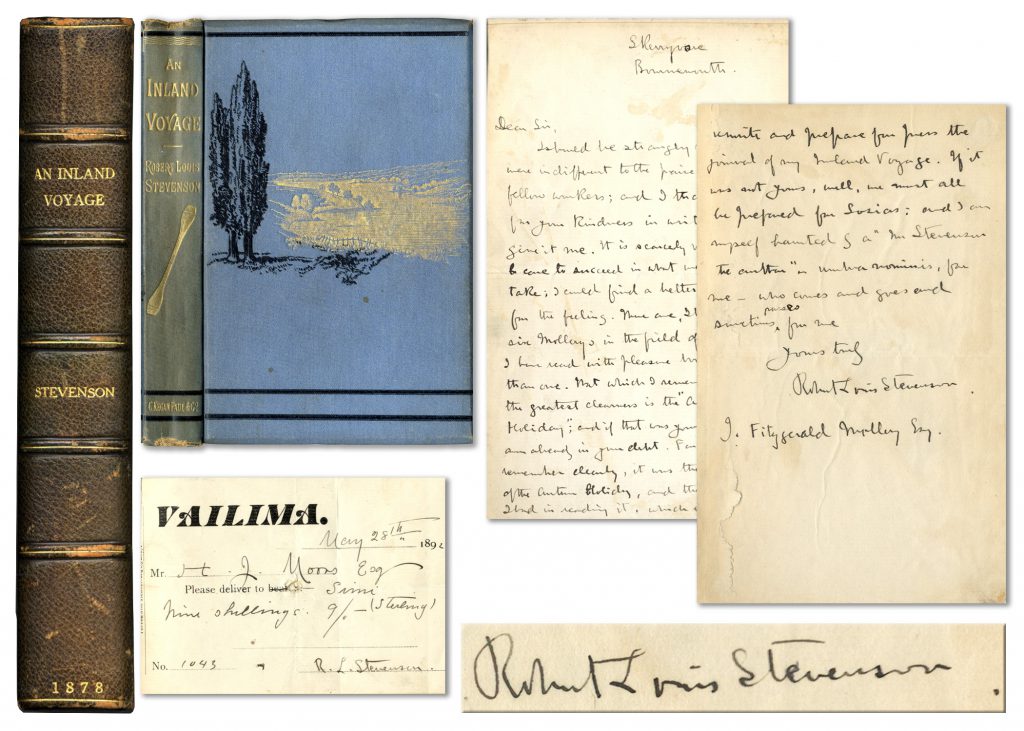 AN INLAND
VOYAGE
STEVENSON
1878
AN
INLAND
VOYAGE
ROBERT LOUIS
STEVENSON
C. KEGAN PAUL & Co
VAILIMA.
May 28th 1892
Mr. H. J. Moors Esq
Please deliver to bearer:— Simi
Nine shillings. 9/- (Sterling)
No. 1043 R. L. Stevenson.
Skerryvore
Bournemouth.
Dear Sir,
I should be strangely
were indifferent to the praise
fellow workers; and I tha
for your kindness in writ
give it me. It is scarcely
to come to succeed in what we
take; I could find a better
for the feeling. There are, I
six Molloys in the field of
I have read with pleasure
than one. That which I remem
the greatest clearness is the
Holiday"; and if that was your
am already in your debt.
remember clearly, it was the
of the Autumn Holiday, and th
I had in reading it, which
rewrite and prepare for press the
journal of my Inland Voyage. If it
was not yours, well, we must all
be prepared for Sosias; and I am
myself haunted by a "Mr Stevenson
the author" umbra nominis, for
me — who comes and goes and
sometimes passes for me
Yours truly
Robert Louis Stevenson.
J. Fitzgerald Molloy Esq.
Robert Louis Stevenson.